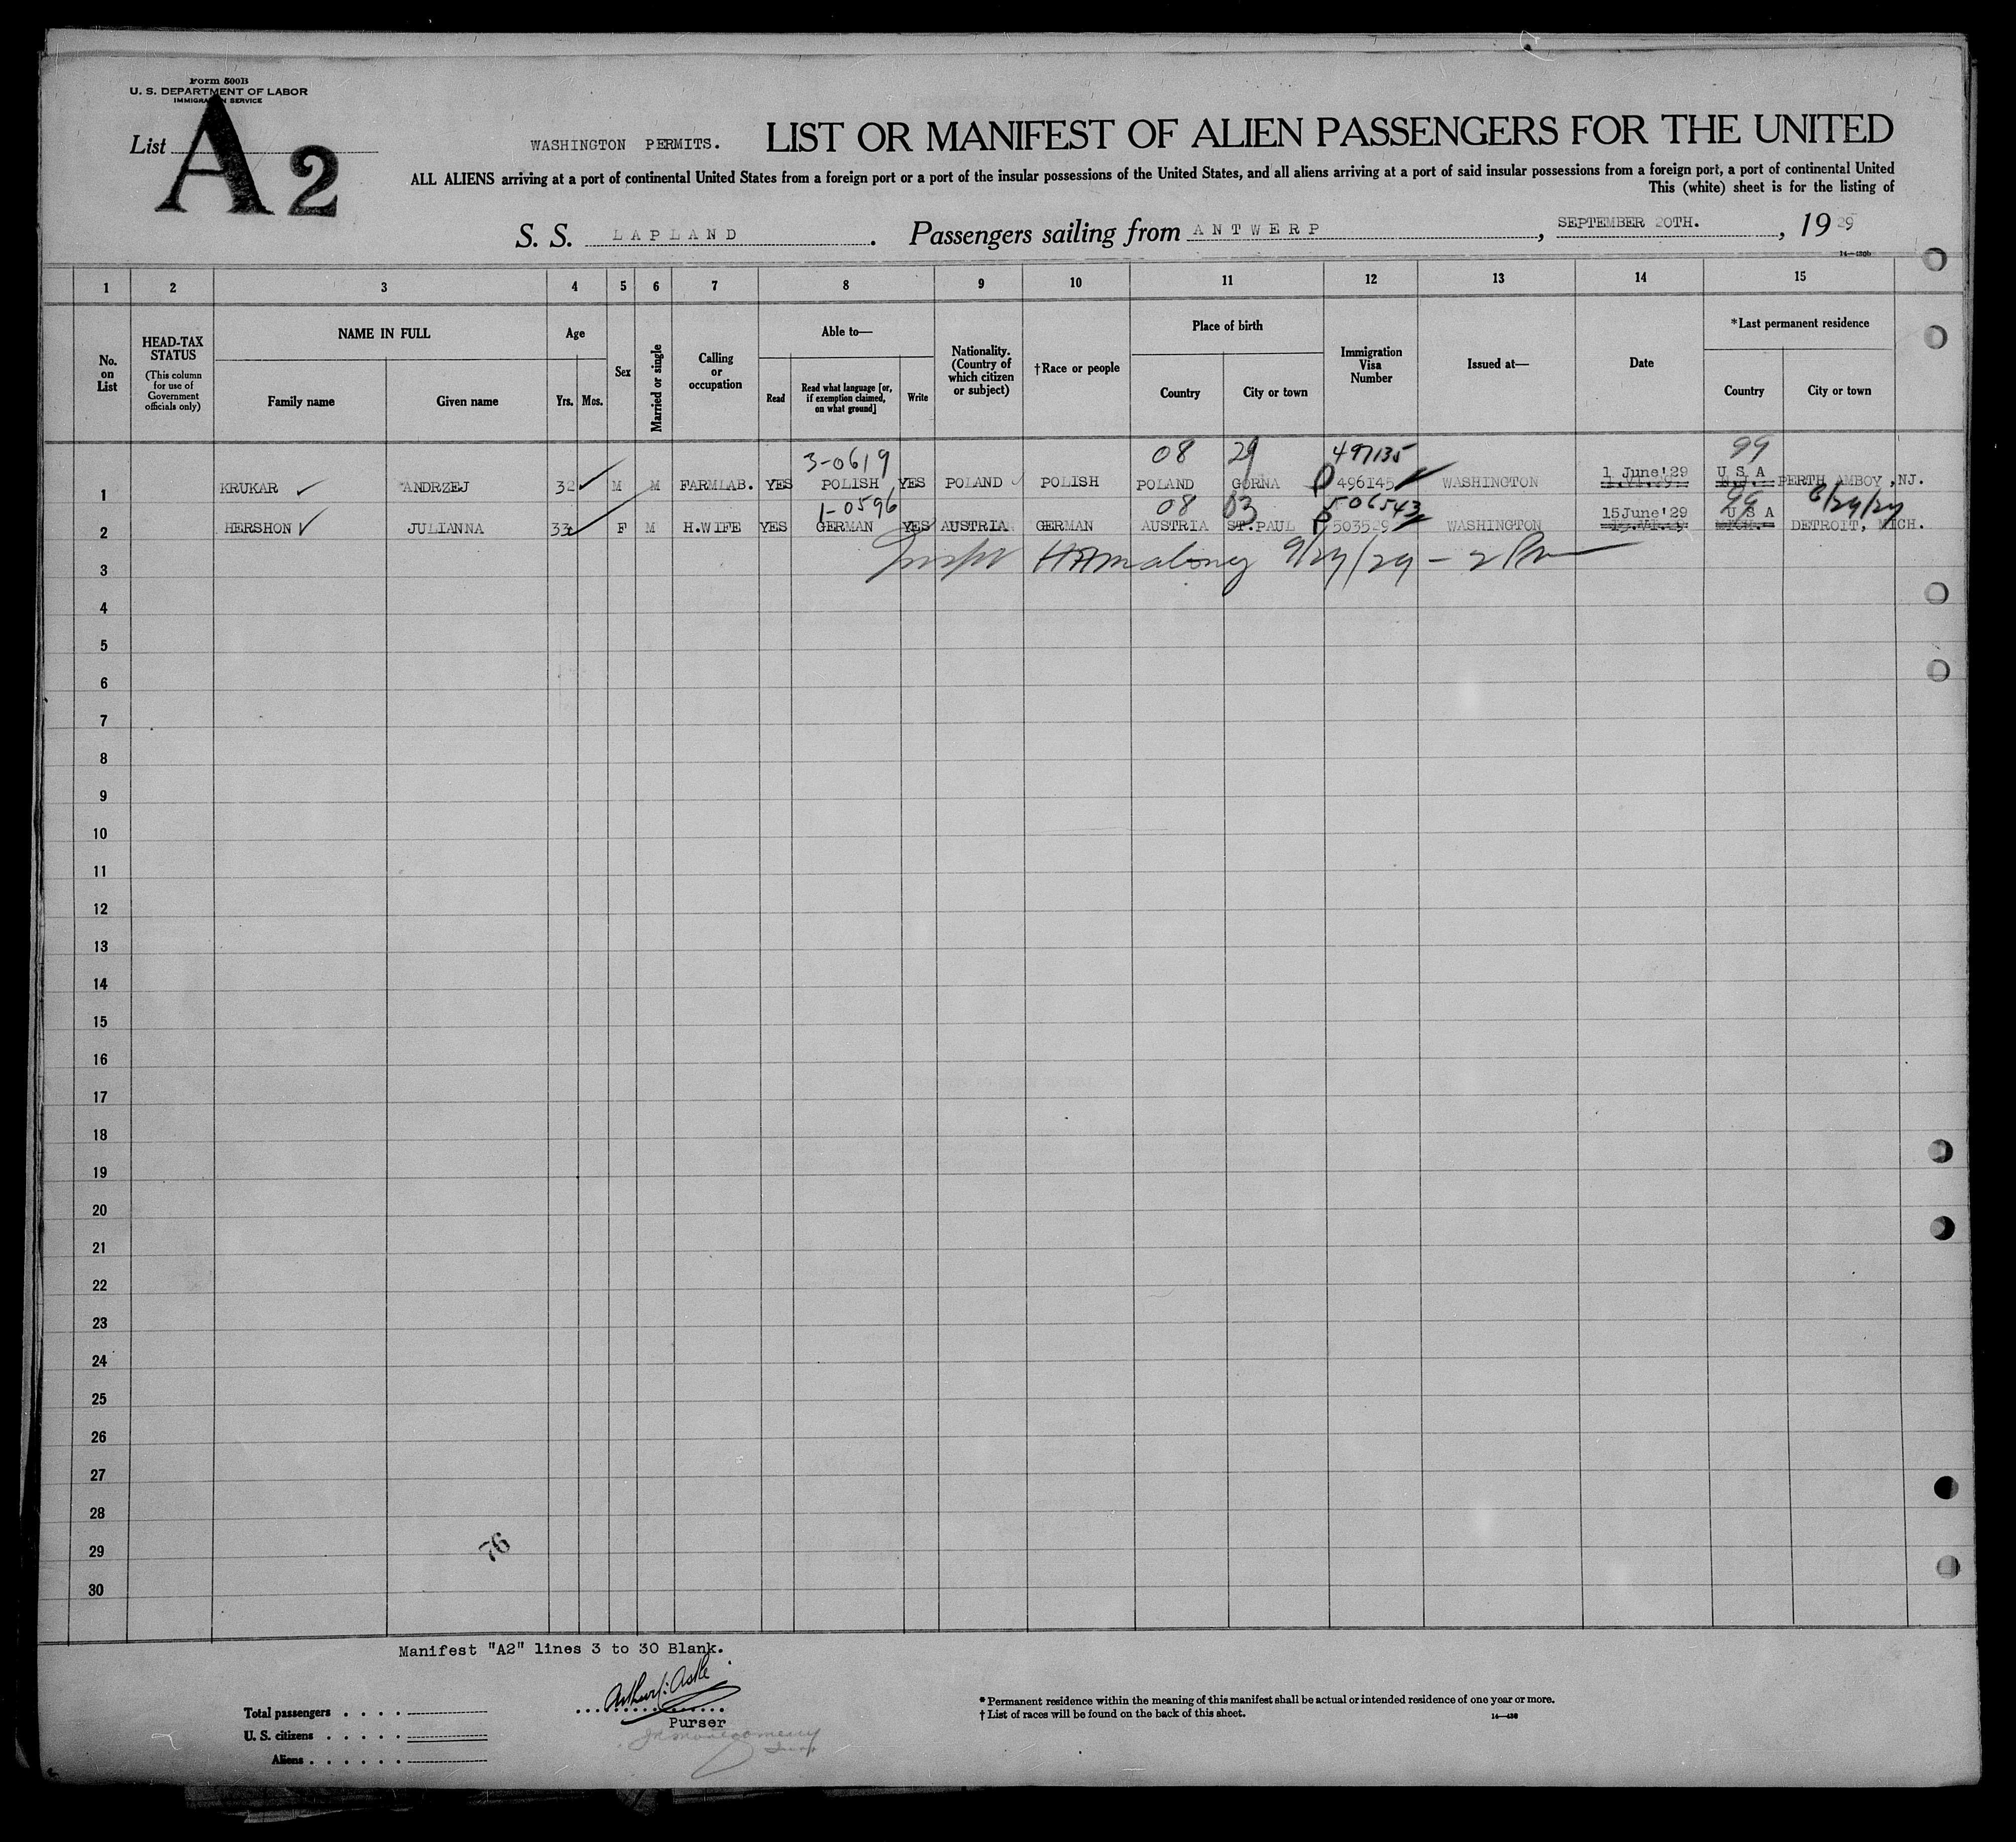 Form 500B
U. S. DEPARTMENT OF LABOR
IMMIGRATION SERVICE
List A 2
WASHINGTON PERMITS. LIST OR MANIFEST OF ALIEN PASSENGERS FOR THE UNITED
ALL ALIENS arriving at a port of continental United States from a foreign port or a port of the insular possessions of the United States, and all aliens arriving at a port of said insular possessions from a foreign port, a port of continental United
This (white) sheet is for the listing of
S. S. LAPLAND. Passengers sailing from ANTWERP, SEPTEMBER 20TH., 1929
14—430b
1 2 3 4 5 6 7 8 9 10 11 12 13 14 15
No. on List
HEAD-TAX STATUS
(This column for use of Government officials only)
NAME IN FULL
Family name Given name
Age
Yrs. Mos.
Sex
Married or single
Calling or occupation
Able to—
Read
Read what language [or, if exemption claimed, on what ground]
Write
Nationality. (Country of which citizen or subject)
†Race or people
Place of birth
Country City or town
Immigration Visa Number
Issued at—
Date
*Last permanent residence
Country City or town
3-0619 08 29 497135 99
1 KRUKAR ANDRZEJ 32 M M FARMLAB. YES POLISH YES POLAND POLISH POLAND GORNA P 496145 WASHINGTON 1 June'29 U S A PERTH AMBOY, NJ.
1-0596 08 03 506543 99
2 HERSHON JULIANNA 33 F M H.WIFE YES GERMAN YES AUSTRIA GERMAN AUSTRIA ST.PAUL P 503529 WASHINGTON 15June'29 U S A DETROIT, MICH.
Inspr HAMaloney 9/29/29 - 2 Pm
3
4
5
6
7
8
9
10
11
12
13
14
15
16
17
18
19
20
21
22
23
24
25
26
27
28
29
30
76
Manifest "A2" lines 3 to 30 Blank.
Purser
Total passengers
U. S. citizens
Aliens
* Permanent residence within the meaning of this manifest shall be actual or intended residence of one year or more.
† List of races will be found on the back of this sheet.
14—430